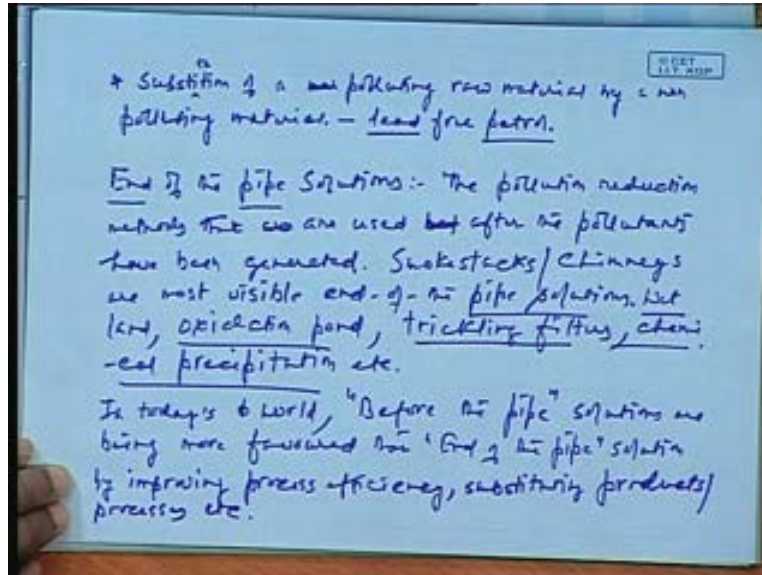 © CET
I.I.T. KGP
* Substitution of a polluting raw material by a non
polluting material. – lead free petrol.
End of the pipe Solutions:- The pollution reduction
methods that are used after the pollutants
have been generated. Smokestacks/Chimneys
are most visible end-of-the pipe solutions. Wet
land, oxidation pond, trickling filters, chemi
-cal precipitation etc.
In today's world, "Before the pipe" solutions are
being more favoured than "End of the pipe" solution
by improving process efficiency, substituting products/
processes etc.